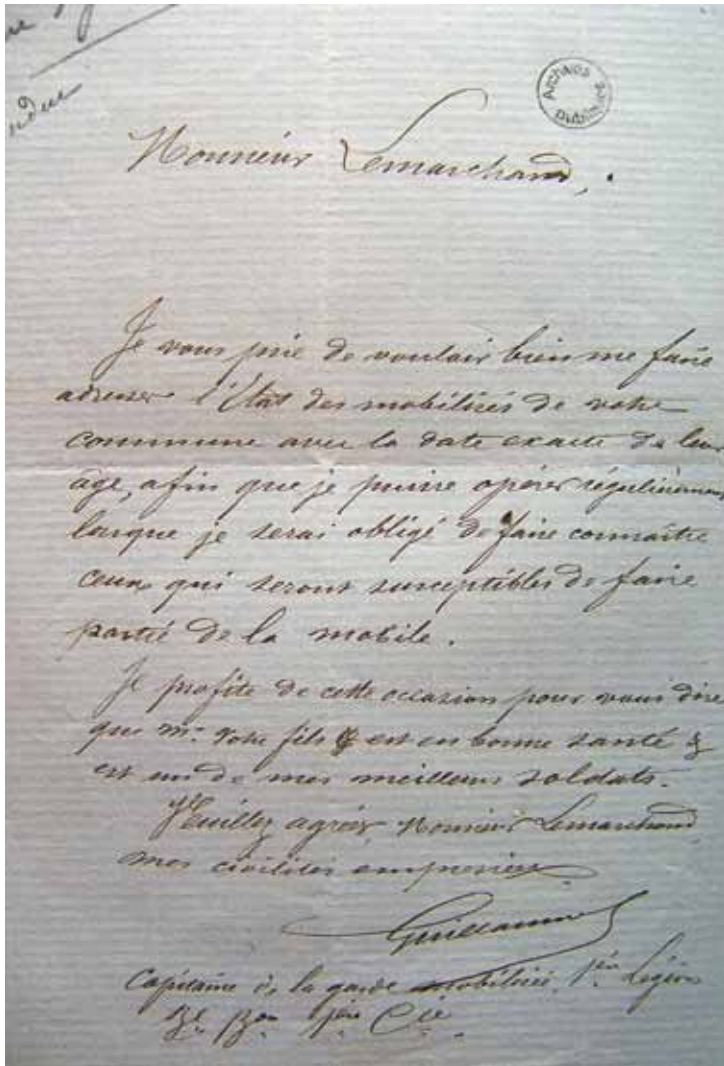 Archives
publiques
Monsieur Lemarchand,.
Je vous prie de vouloir bien me faire
adresser l'Etat des mobilisés de votre
commune avec la date exacte de leur
âge, afin que je puisse opérer régulièrement
lorsque je serai obligé de faire connaître
ceux qui seront susceptibles de faire
partie de la mobile.
Je profite de cette occasion pour vous dire
que Mr. votre fils est en bonne santé &
est un de mes meilleurs soldats.
Veuillez agréer, Monsieur Lemarchand
mes civilités empressées
Guillaume
Capitaine de la garde mobilisée, 1ère Légion
3e Bon 1ère Cie